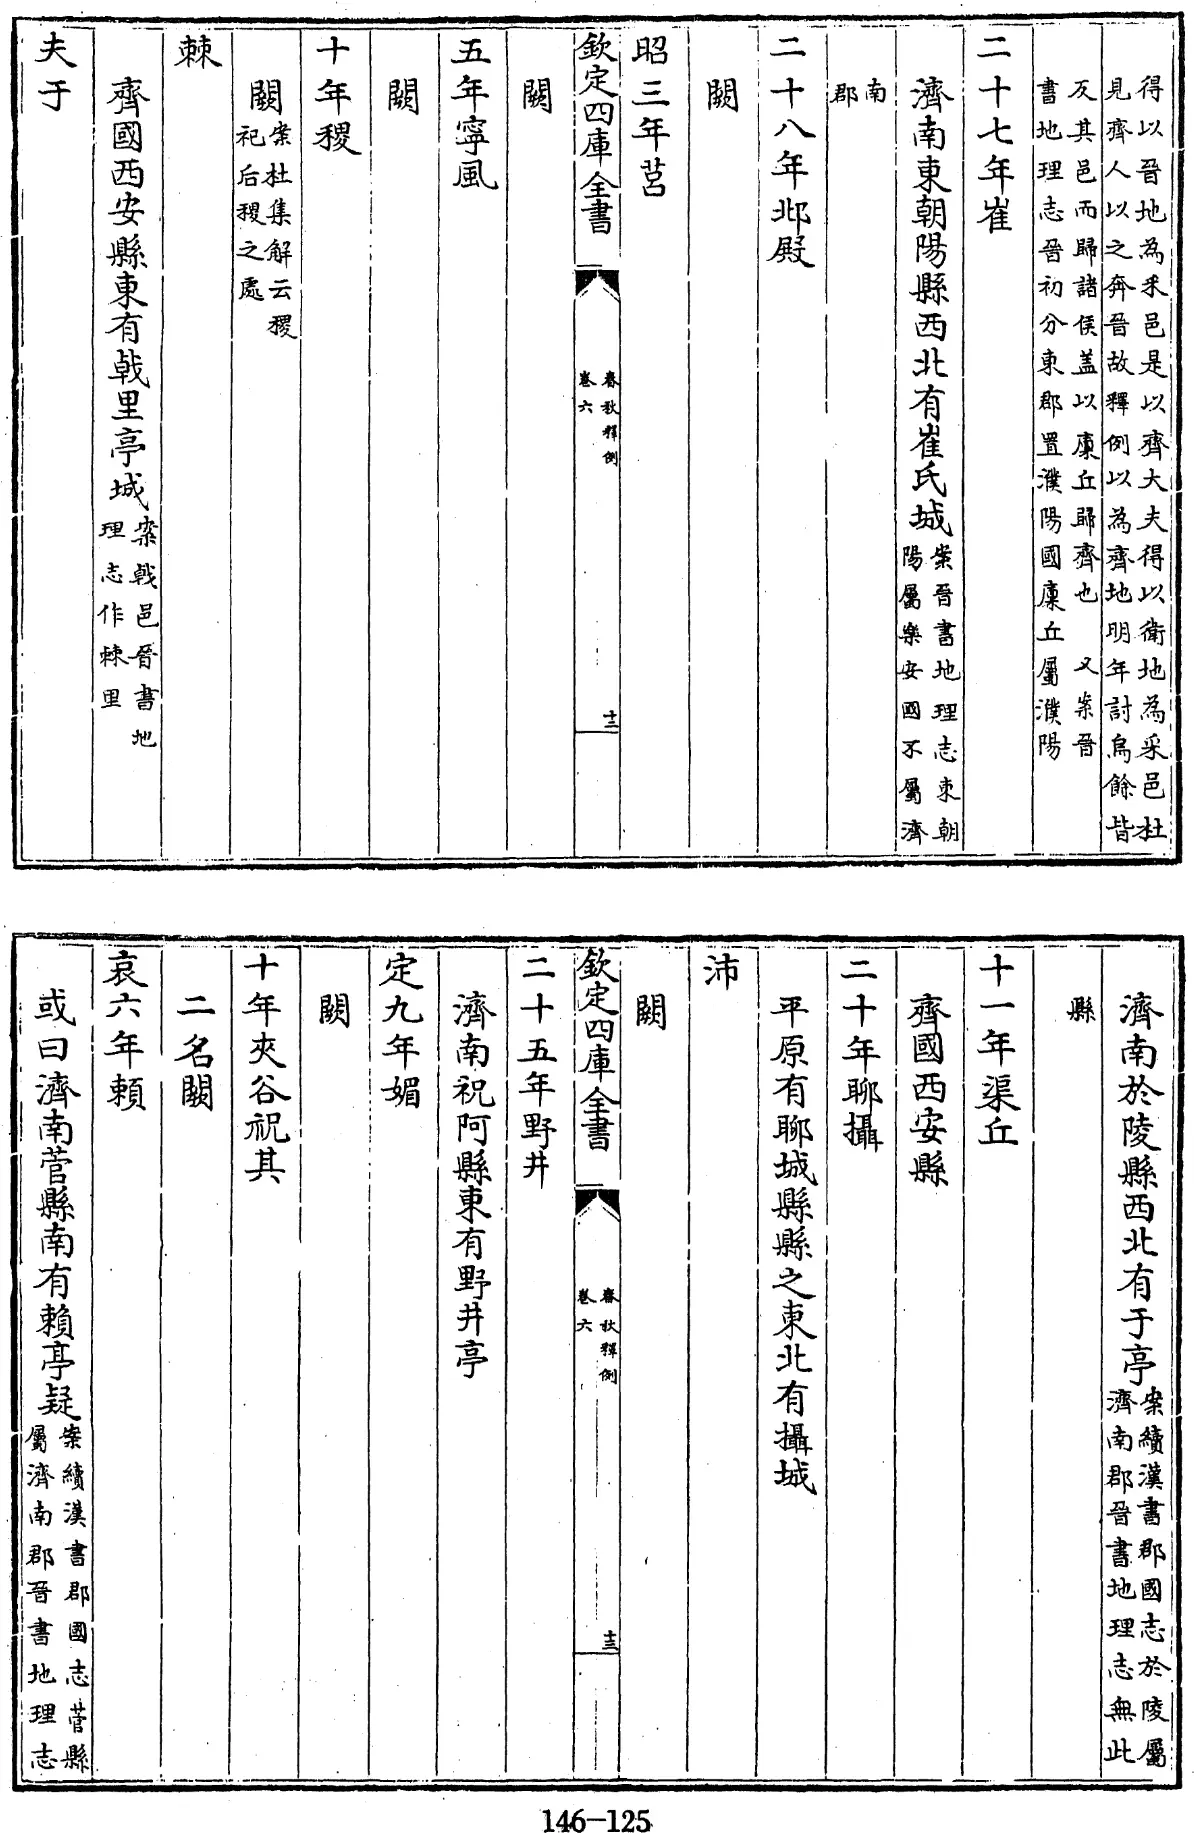 得以晉地為采邑是以齊大夫得以衛地為采邑杜
見齊人以之奔晉故釋例以為齊地明年討烏餘皆
反其邑而歸諸侯盖以廪丘歸齊也 又案晉
書地理志晉初分東郡置濮陽國廪丘屬濮陽
二十七年崔
濟南東朝陽縣西北有崔氏城
案晉書地理志東朝
陽屬樂安國不屬濟
南
郡
二十八年邶殿
闕
昭三年莒
欽定四庫全書
春秋釋例
卷六
十二
闕
五年寧風
闕
十年稷
闕
案杜集解云稷
祀后稷之處
棘
齊國西安縣東有戟里亭城
案戟邑晉書地
理志作棘里
夫于
濟南於陵縣西北有于亭
案續漢書郡國志於陵屬
濟南郡晉書地理志無此
縣
十一年渠丘
齊國西安縣
二十年聊攝
平原有聊城縣縣之東北有攝城
沛
闕
欽定四庫全書
春秋釋例
卷六
十三
二十五年野井
濟南祝阿縣東有野井亭
定九年媚
闕
十年夾谷祝其
二名闕
哀六年賴
或曰濟南菅縣南有賴亭疑
案續漢書郡國志菅縣
屬濟南郡晉書地理志
146-125